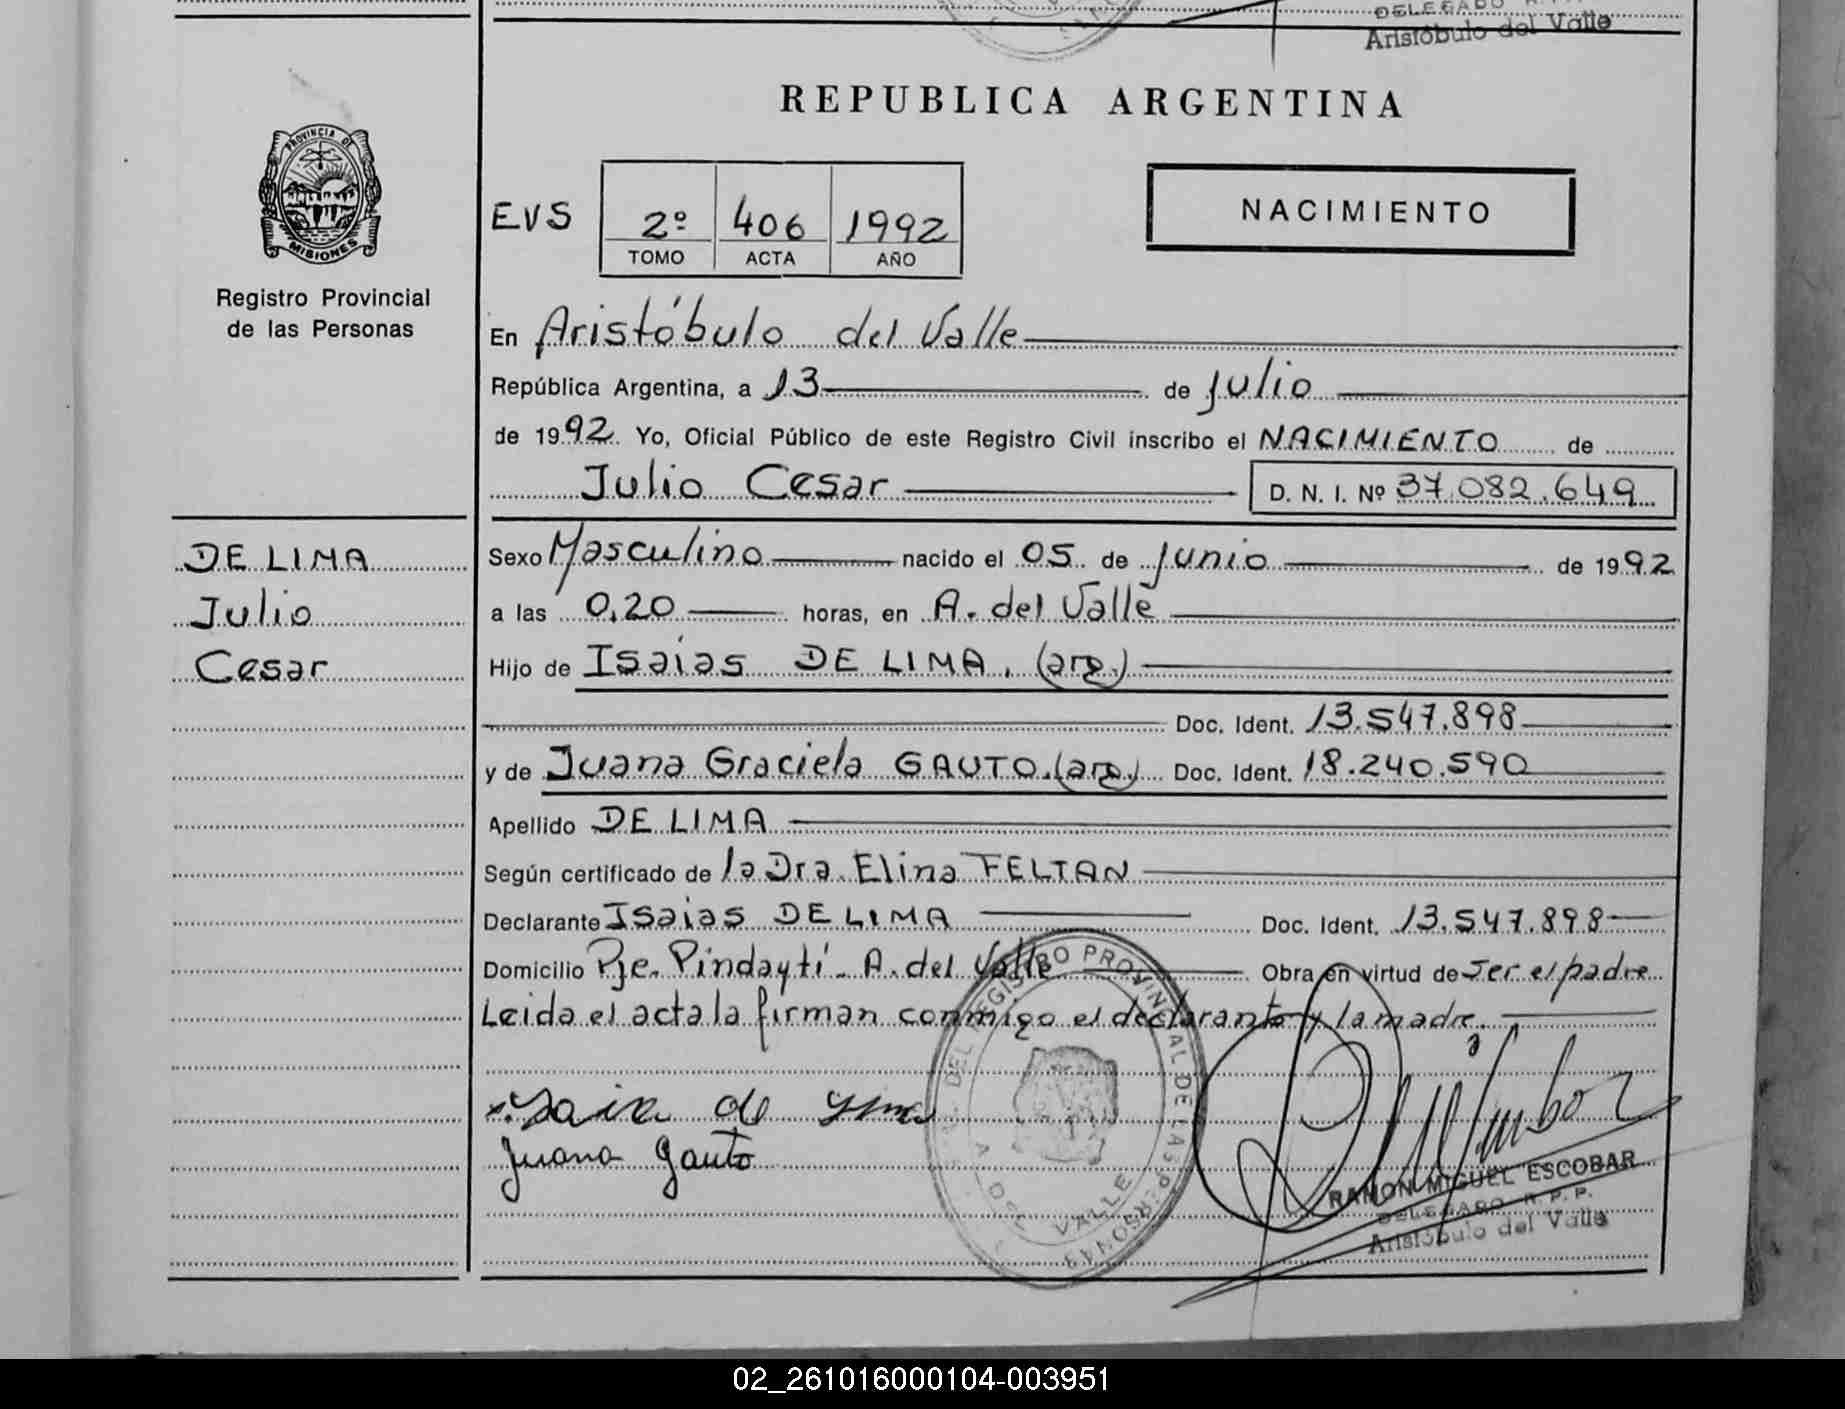 DELEGADO R. P. P.
Aristóbulo del Valle
REPUBLICA ARGENTINA
PROVINCIA DE
MISIONES
Registro Provincial
de las Personas
EVS 2º 406 1992
TOMO ACTA AÑO
NACIMIENTO
En Aristóbulo del Valle
República Argentina, a 13 de Julio
de 1992. Yo, Oficial Público de este Registro Civil inscribo el NACIMIENTO de
Julio Cesar D. N. I. Nº 37.082.649
DE LIMA
Julio
Cesar
Sexo Masculino nacido el 05 de Junio de 1992
a las 0,20 horas, en A. del Valle
Hijo de Isaias DE LIMA. (arg.)
Doc. Ident. 13.547.898
y de Juana Graciela GAUTO. (arg.) Doc. Ident. 18.240.590
Apellido DE LIMA
Según certificado de la Dra. Elina FELTAN
Declarante Isaias DE LIMA Doc. Ident. 13.547.898
Domicilio Pje. Pindaytí - A. del Valle Obra en virtud de ser el padre
Leida el acta la firman conmigo el declarante y la madre.
DEL REGISTRO PROVINCIAL DE LAS PERSONAS
VALLE
Juana Gauto
RAMON MIGUEL ESCOBAR
DELEGADO R. P. P.
Aristóbulo del Valle
02_261016000104-003951